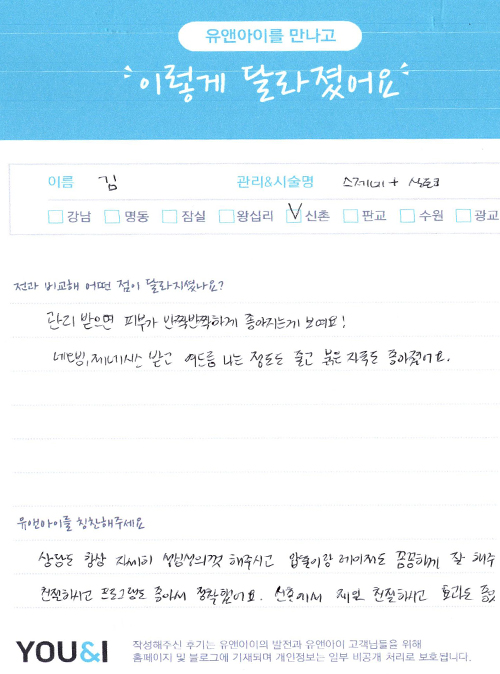 유앤아이를 만나고
이렇게 달라졌어요
이름 김 관리&시술명 스케일 +
강남 명동 잠실 왕십리 신촌 판교 수원 광교
전과 비교해 어떤 점이 달라지셨나요?
관리 받으면 피부가 반짝반짝하게 좋아지는게 보여요!
제네시스 받고 여드름 나는 정도도 줄고 붉은 자국도 좋아졌어요.
유앤아이를 칭찬해주세요
상담도 항상 자세히 성심성의껏 해주시고 압출이랑 레이저도 꼼꼼하게 잘 해주
친절하시고 프로그램도 좋아서 정착했어요. 신촌에서 제일 친절하시고 효과도 좋
YOU&I
작성해주신 후기는 유앤아이의 발전과 유앤아이 고객님들을 위해
홈페이지 및 블로그에 기재되며 개인정보는 일부 비공개 처리로 보호됩니다.